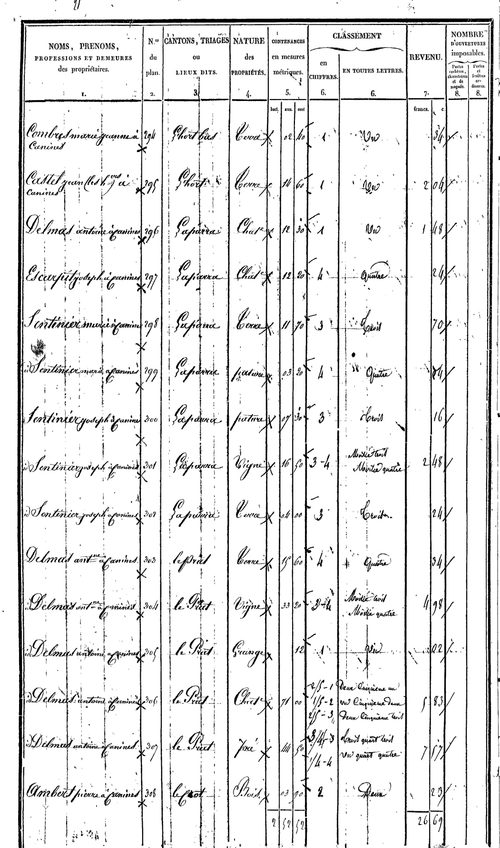 NOMS, PRENOMS,
PROFESSIONS ET DEMEURES
des propriétaires.
1.
N.os
du
plan.
2.
CANTONS, TRIAGES
ou
LIEUX DITS.
3.
NATURE
des
PROPRIÉTÉS.
4.
CONTENANCES
en mesures
métriques.
5.
CLASSEMENT
en
CHIFFRES.
6.
EN TOUTES LETTRES.
6.
REVENU.
7.
NOMBRE
D'OUVERTURES
imposables.
8.
8.
hect. ares cent. francs. c.
Combres marie jeanne à 294 L'hort bas Terre 02 40 1 Un 34
Canines
Castel jean 295 L'hort Terre 14 60 1 Un 2 04
Canines
Delmas antoine à Canines 296 Laparra 12 30 1 Un 1 48
Escarpit joseph à Canines 297 Laparra 12 20 4 Quatre 24
Sentinier marie à Canines 298 Laparra Terre 11 70 3 Trois 70
d Sentinier marie à Canines 299 Laparra pature 03 20 4 Quatre 04
Sentinier joseph à Canines 300 Laparra pature 07 30 3 Trois 16
d Sentinier joseph à Canines 301 Laparra Vigne 16 50 3-4 Moitié trois Moitié quatre 2 48
d Sentinier joseph à Canines 302 Laparra Terre 04 00 3 Trois 24
Delmas ant.ne à Canines 303 le Prat Terre 15 60 4 Quatre 34
d Delmas ant.ne à Canines 304 le Prat Vigne 33 20 3-4 Moitié trois Moitié quatre 4 98
d Delmas antoine à Canines 305 le Prat Grange 12 1 Un 02
d Delmas antoine à Canines 306 le Prat 71 00 2/5-1 Deux Cinquième un 5 83
1/5-2 un Cinquième deux
2/5-3 deux Cinquième trois
d Delmas antoine à Canines 307 le Prat Pré 44 50 3/4-3 trois quart trois 7 57
1/4-4 un quart quatre
Ambert pierre à Canines 308 Bois 03 90 2 Deux 23
2 52 52 26 69